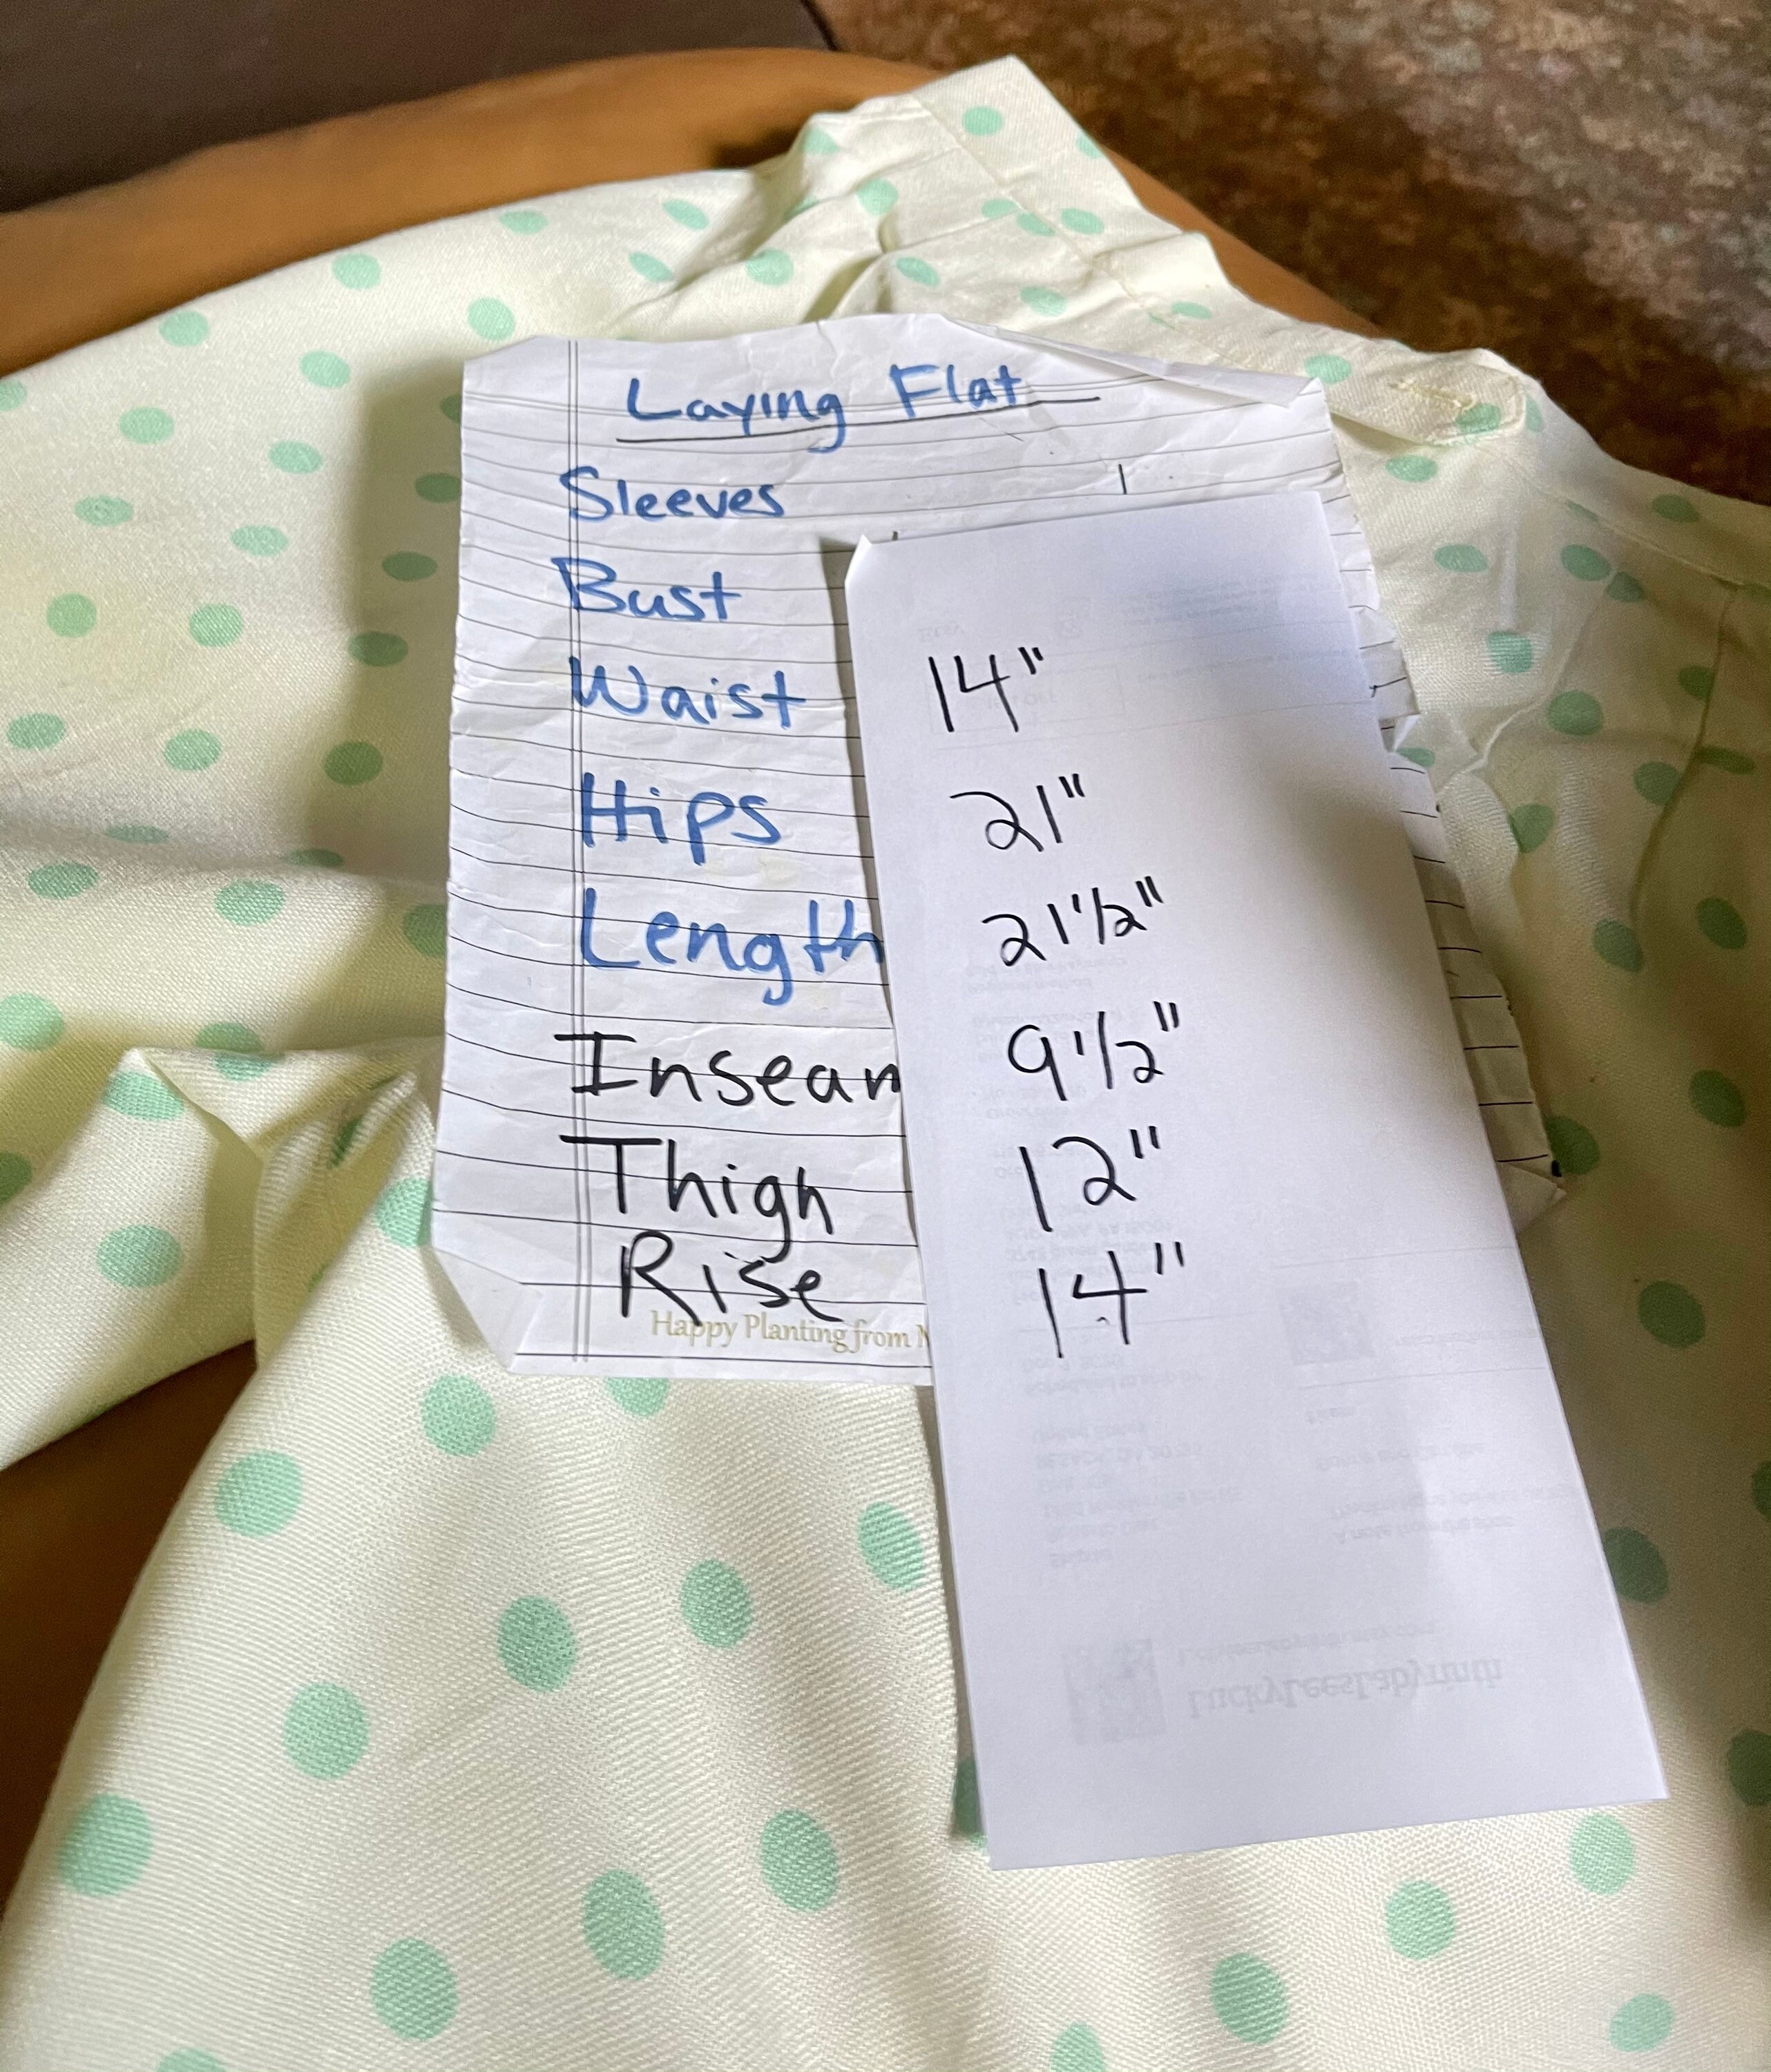 Laying Flat
Sleeves
Bust
Waist 14"
Hips 21"
Length 21 1/2"
Inseam 9 1/2"
Thigh 12"
Rise 14"
Happy Planting from
LuckyLeesLabyrinth